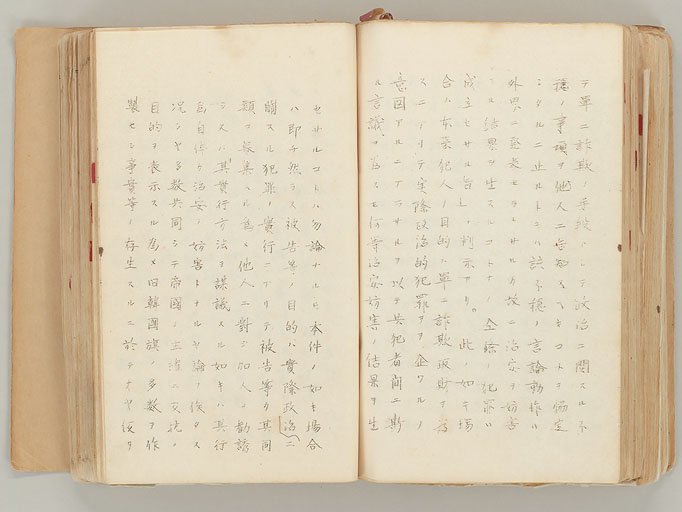 テ單ニ詐欺ノ手段トシテ政治ニ関スル不
穏ノ事項ヲ他人ニ告知スヘキコトヲ協定
シタルニ止ルトキハ該不穏ノ言論動作ハ
外界ニ發表セラレサルカ故ニ治安ヲ妨害
スル結果ヲ生スルコトナク 全然犯罪ハ
成立セサル旨ヲ判示アリ。此ノ如キ場
合ハ本来犯人ノ目的ハ單ニ詐欺取財ヲ為
スニアリテ実際政治的犯罪ヲ企ツルノ
意図アルニアラサルヲ以テ共犯者間ニ斯
ル言議ヲ為スモ何等治安妨害ノ結果ヲ生
セサルコトハ勿論ナルモ 本件ノ如キ場合
ハ即チ然ラス被告等ノ目的ハ實際政治ニ
関スル犯罪ノ實行ニアリテ被告等カ其同
類ヲ募集スル為メ他人ニ對シ加入ヲ勧誘
シ又ハ其實行方法ヲ謀議スル如キハ其行
為自体カ治安ノ妨害トナルヤ論ヲ俟タス
況ンヤ多数共同シテ帝國ノ主権ニ反抗ノ
目的ヲ表示スル為メ旧韓國旗ノ多数ヲ作
製セシ事實等ノ存生スルニ於テオヤ仮令